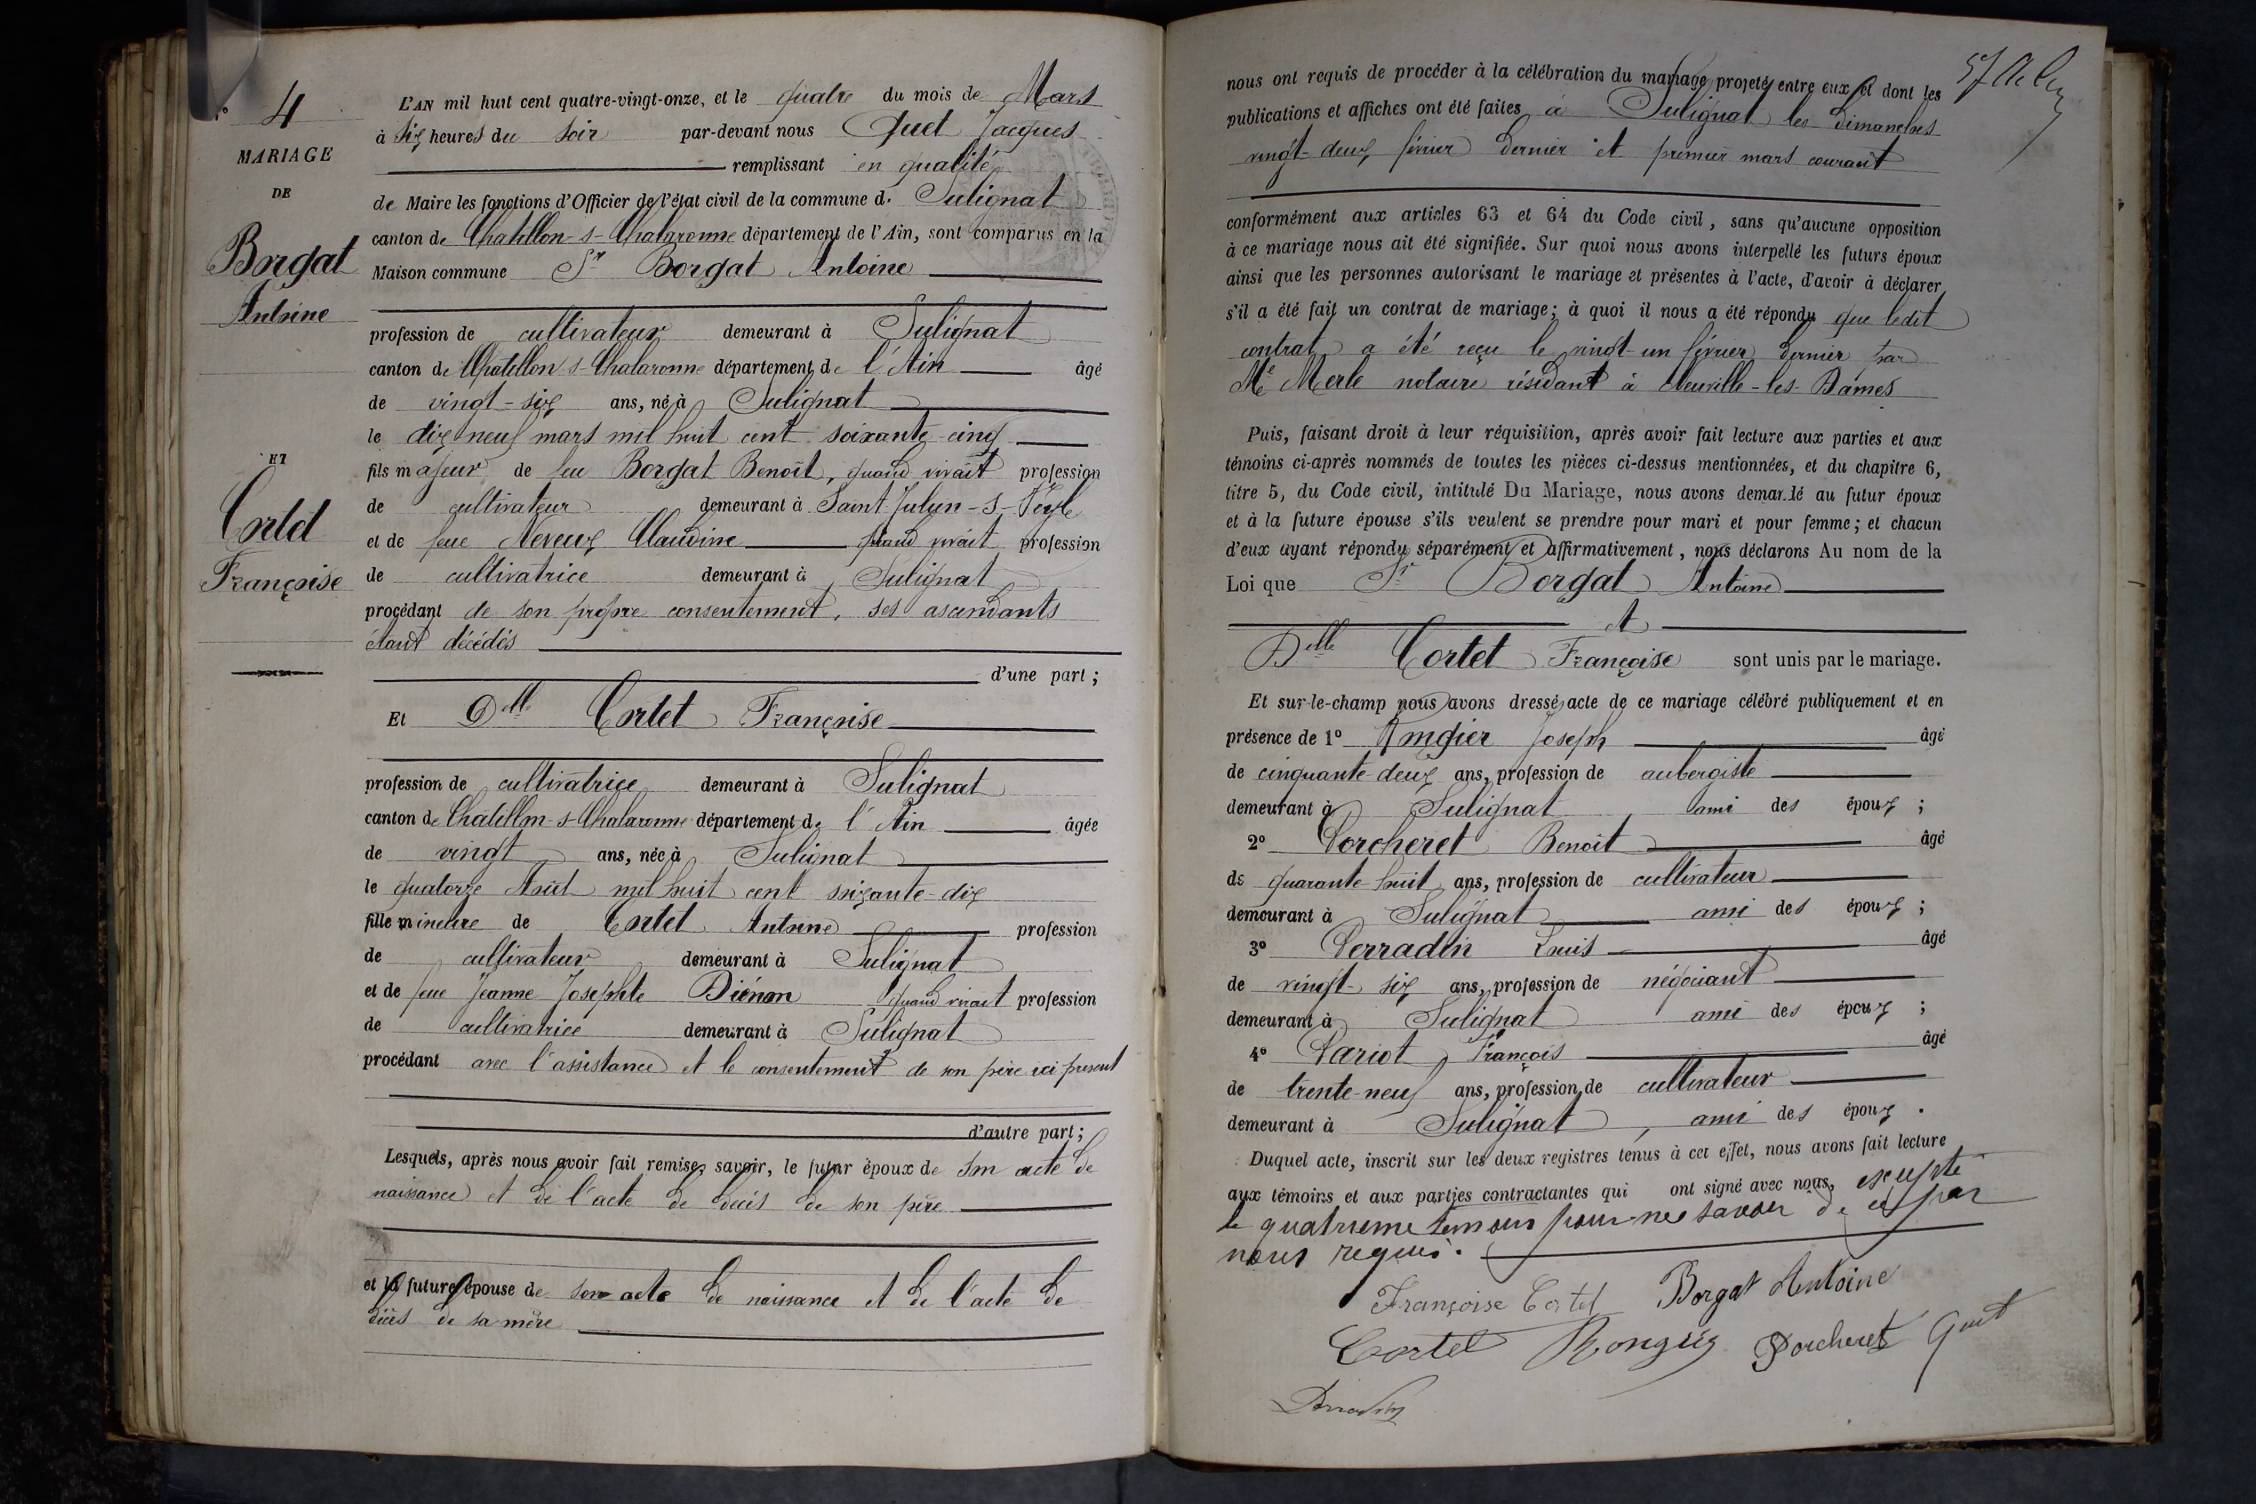 4
MARIAGE
DE
Borgat
Antoine
ET
Cortet
Françoise
L'AN mil huit cent quatre-vingt-onze, et le quatre du mois de Mars
à six heures du soir par-devant nous Quet Jacques
remplissant en qualité
de Maire les fonctions d'Officier de l'état civil de la commune d. Sulignat
canton de Chatillon-s-Chalaronne département de l'Ain, sont comparus en la
Maison commune Sr Borgat Antoine
profession de cultivateur demeurant à Sulignat
canton de Chatillon s-Chalaronne département de l'Ain âgé
de vingt-six ans, né à Sulignat
le dix neuf mars mil huit cent soixante cinq
fils majeur de feu Borgat Benoît, quand vivait profession
de cultivateur demeurant à Saint-Julien-s-Veyle
et de feue Neveux Claudine quand vivait profession
de cultivatrice demeurant à Sulignat
procédant de son propre consentement, ses ascendants
étant décédés
d'une part;
Et Delle Cortet Françoise
profession de cultivatrice demeurant à Sulignat
canton de Châtillon-s-Chalaronne département de l'Ain âgée
de vingt ans, née à Sulignat
le quatorze Août mil huit cent soixante-dix
fille mineure de Cortet Antoine profession
de cultivateur demeurant à Sulignat
et de feue Jeanne Josephte Diénon quand vivait profession
de cultivatrice demeurant à Sulignat
procédant avec l'assistance et le consentement de son père ici présent
d'autre part;
Lesquels, après nous avoir fait remise, savoir, le futur époux de son acte de
naissance et de l'acte de décès de son père
et la future épouse de son acte de naissance et de l'acte de
décès de sa mère
nous ont requis de procéder à la célébration du mariage projeté entre eux et dont les
publications et affiches ont été faites à Sulignat les dimanches
vingt-deux février dernier et premier mars courant
conformément aux articles 63 et 64 du Code civil, sans qu'aucune opposition
à ce mariage nous ait été signifiée. Sur quoi nous avons interpellé les futurs époux
ainsi que les personnes autorisant le mariage et présentes à l'acte, d'avoir à déclarer
s'il a été fait un contrat de mariage; à quoi il nous a été répondu que ledit
contrat a été reçu le vingt-un février dernier par
Me Merle notaire résidant à Neuville-les-Dames
Puis, faisant droit à leur réquisition, après avoir fait lecture aux parties et aux
témoins ci-après nommés de toutes les pièces ci-dessus mentionnées, et du chapitre 6,
titre 5, du Code civil, intitulé Du Mariage, nous avons demandé au futur époux
et à la future épouse s'ils veulent se prendre pour mari et pour femme; et chacun
d'eux ayant répondu séparément et affirmativement, nous déclarons Au nom de la
Loi que Sr Borgat Antoine
et
Delle Cortet Françoise sont unis par le mariage.
Et sur-le-champ nous avons dressé acte de ce mariage célébré publiquement et en
présence de 1º Rongier Joseph âgé
de cinquante-deux ans, profession de aubergiste
demeurant à Sulignat ami des époux;
2º Porcheret Benoit âgé
de quarante-huit ans, profession de cultivateur
demeurant à Sulignat ami des époux;
3º Perradin Louis âgé
de vingt-six ans, profession de négociant
demeurant à Sulignat ami des époux;
4º Pariot François âgé
de trente-neuf ans, profession de cultivateur
demeurant à Sulignat, ami des époux.
Duquel acte, inscrit sur les deux registres tenus à cet effet, nous avons fait lecture
aux témoins et aux parties contractantes qui ont signé avec nous, excepté
le quatrième témoin pour ne savoir de ce par
nous requis.
Françoise Cortet Borgat Antoine
Cortet Rongier Porcheret Quet
Perradin